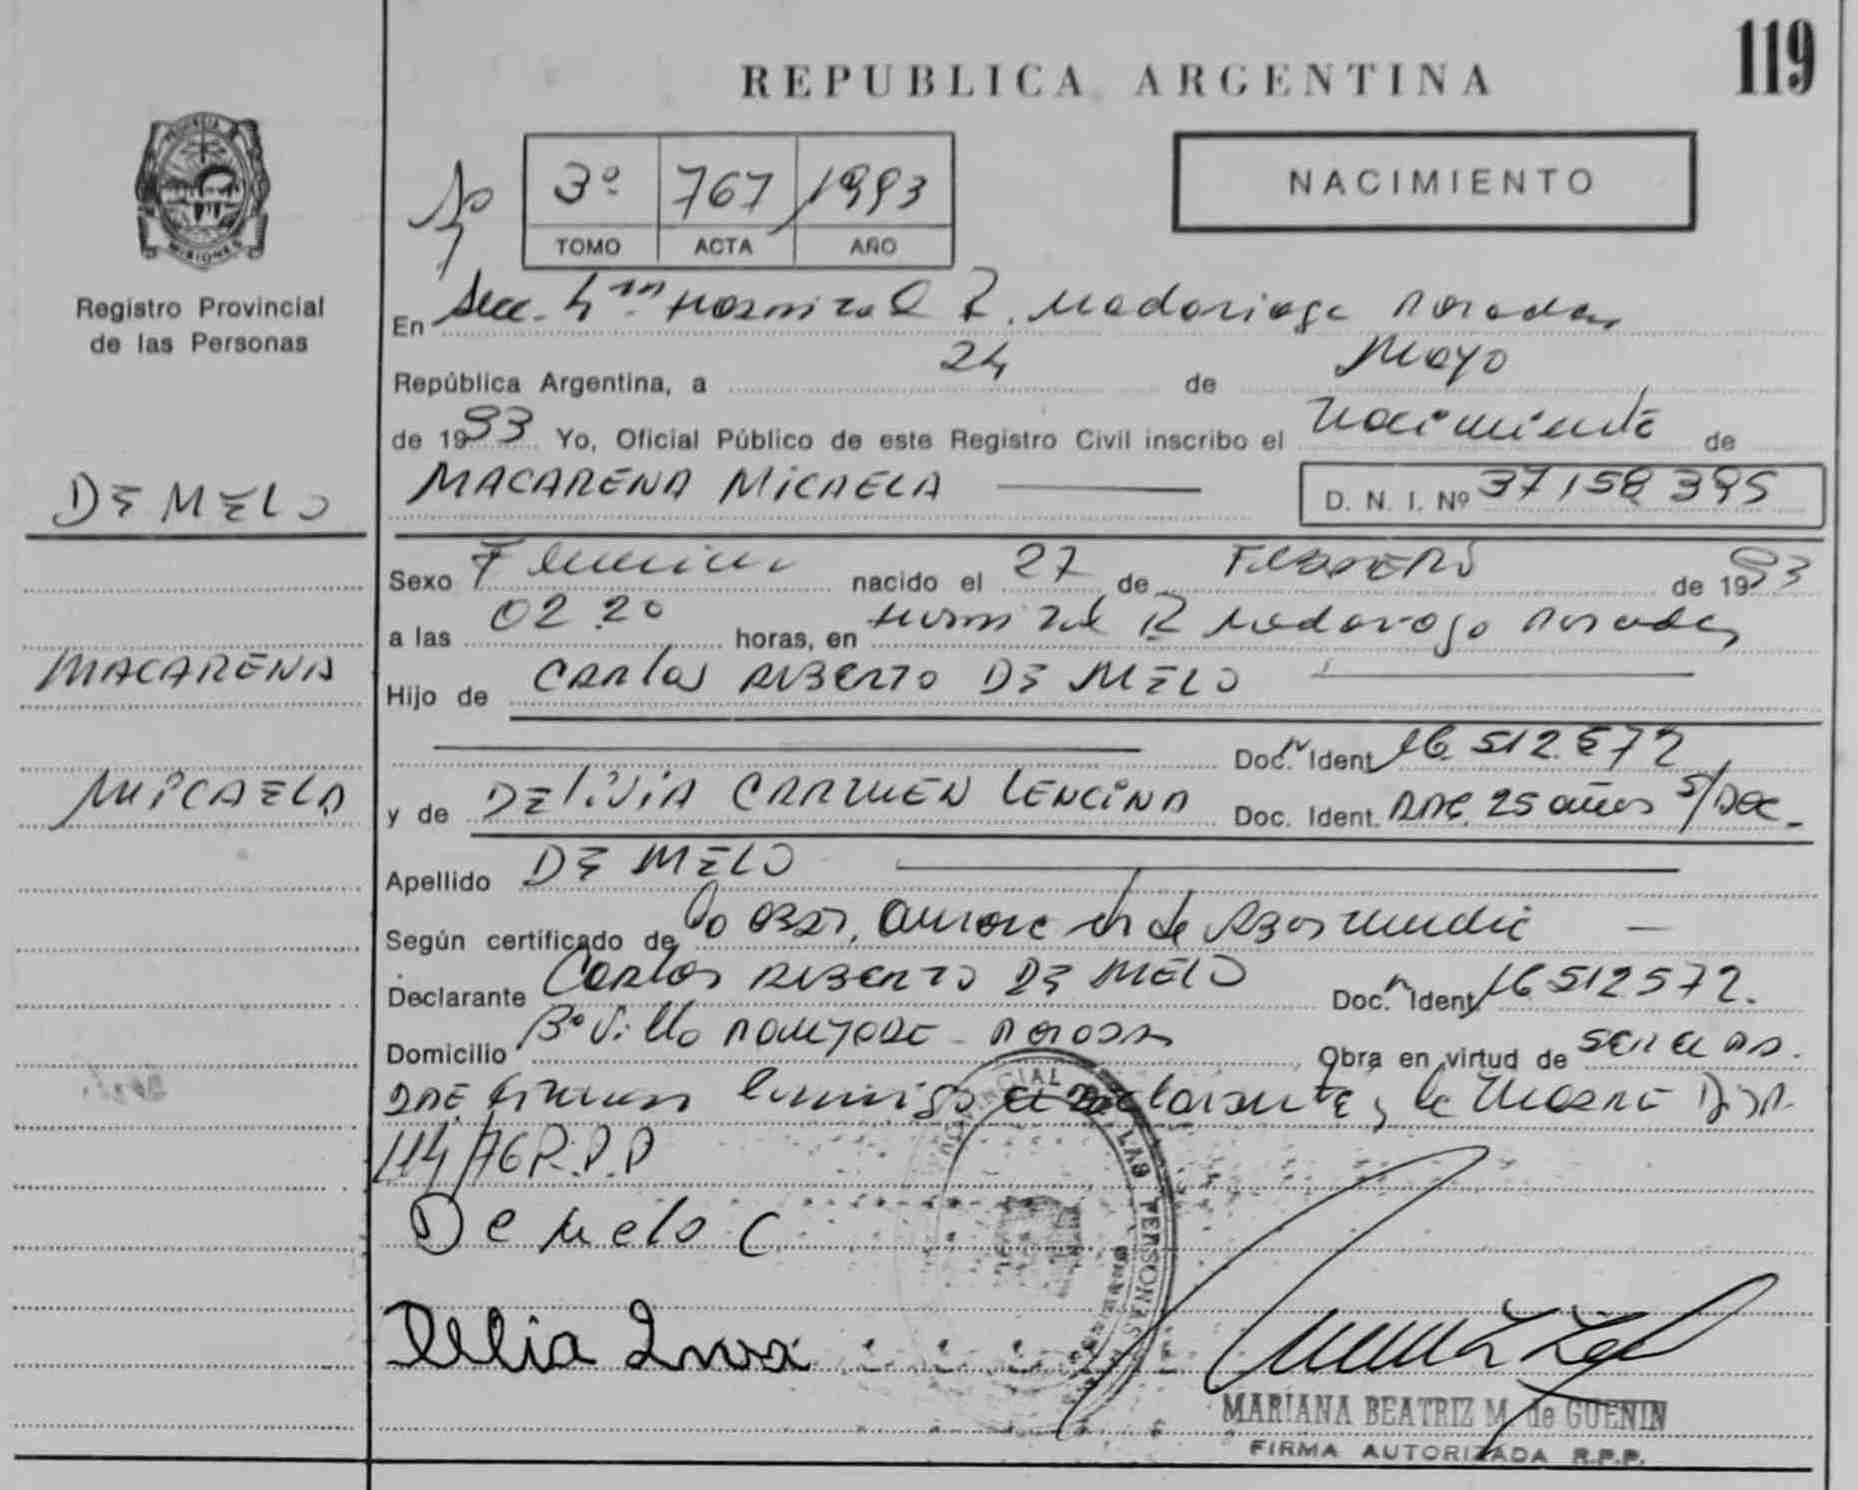 119
REPUBLICA ARGENTINA
PROVINCIA DE
MISIONES
Registro Provincial
de las Personas
3º 767 1993
TOMO ACTA AÑO
NACIMIENTO
En Secc. Hospital R. Madariaga Posadas
República Argentina, a 24 de Mayo
de 1993 Yo, Oficial Público de este Registro Civil inscribo el Nacimiento de
DE MELO
MACARENA MICAELA
D. N. I. Nº 37158395
Sexo Femenino nacido el 27 de FEBRERO de 1993
a las 02 20 horas, en Hospital R Madariaga Posadas
MACARENA
Hijo de CARlos ALBERTO DE MELO
Doc. Ident 16.512.572
MICAELA
y de DELIVIA CARMEN LENCINA Doc. Ident. 25 años
Apellido DE MELO
Según certificado de
Declarante Carlos ALBERTO DE MELO Doc. Ident 16512572.
Domicilio Bº Villa Obra en virtud de
declarante y la
114/76 R.P.P
De Melo C
Delia
PROVINCIAL DE LAS PERSONAS
MARIANA BEATRIZ M. de GUENIN
FIRMA AUTORIZADA R.P.P.